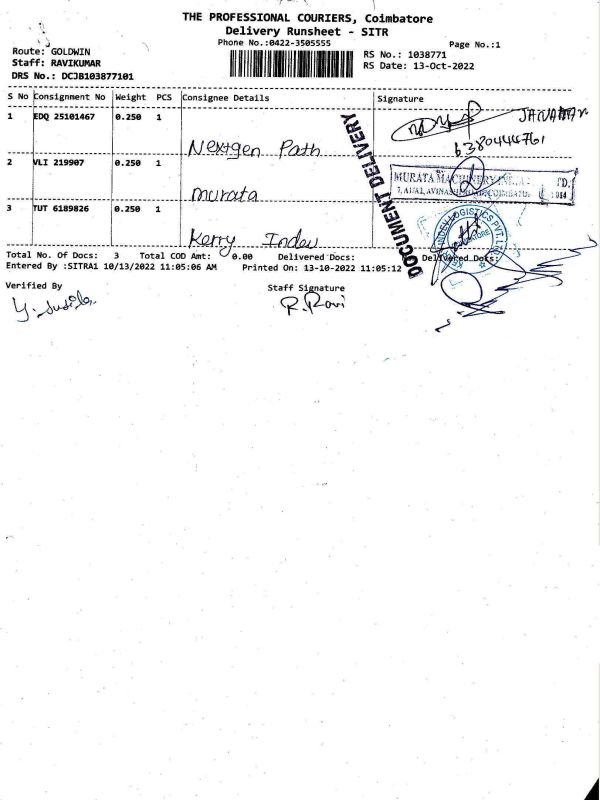 THE PROFESSIONAL COURIERS, Coimbatore
Delivery Runsheet - SITR
Phone No.:0422-3505555
Page No.:1
Route: GOLDWIN
Staff: RAVIKUMAR
DRS No.: DCJB103877101
RS No.: 1038771
RS Date: 13-Oct-2022
S No Consignment No Weight PCS Consignee Details Signature
1 EDQ 25101467 0.250 1 Nextgen Path
6380444761
2 VLI 219907 0.250 1 Murata
MURATA MACHINERY
3 TUT 6189826 0.250 1 Kerry Indev
DOCUMENT DELIVERY
LOGISTICS PVT. LTD
Total No. Of Docs: 3 Total COD Amt: 0.00 Delivered Docs: Delivered Dets:
Entered By :SITRA1 10/13/2022 11:05:06 AM Printed On: 13-10-2022 11:05:12
Verified By Staff Signature
R. Ravi